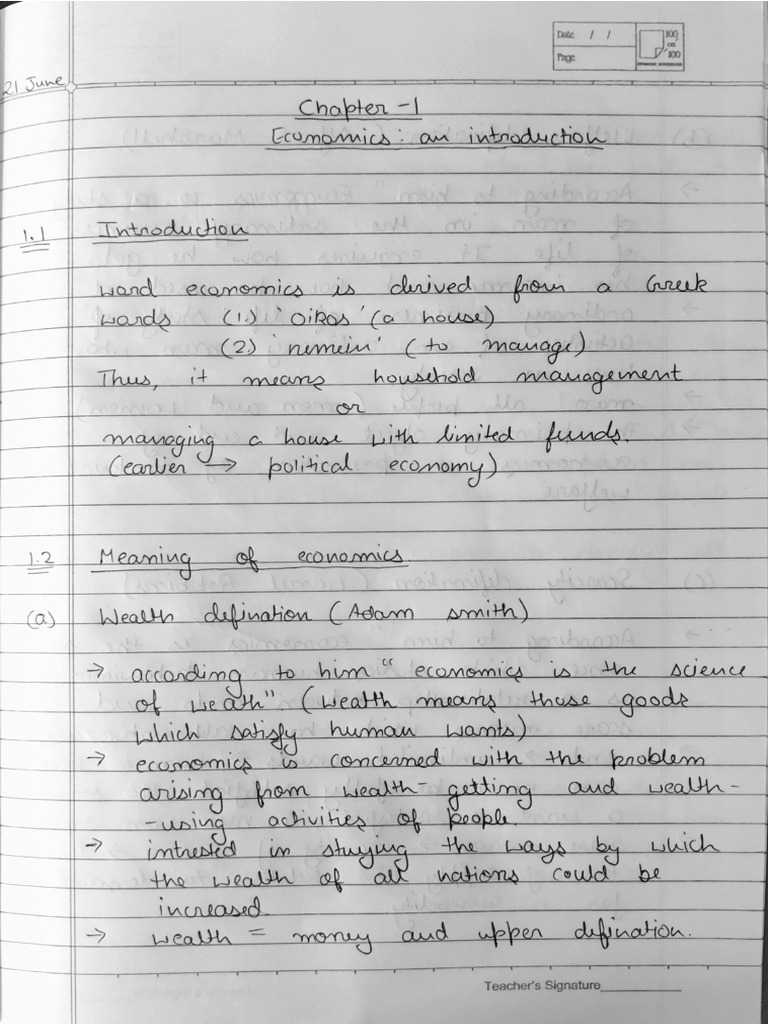 Date / /
100 on 100
Page
21 June
Chapter -1
Economics: an introduction
1.1 Introduction
word economics is derived from a Greek
words (1.) 'oikos' (a house)
(2.) 'nemein' (to manage)
Thus, it means household management
or
managing a house with limited funds.
(earlier → political economy)
1.2 Meaning of economics.
(a) Wealth defination (Adam smith)
→ according to him "economics is the science
of weath" (wealth means those goods
which satisfy human wants)
→ economics is concerned with the problem
arising from wealth-getting and wealth-
-using activities of people.
→ intrested in stuying the ways by which
the wealth of all nations could be
increased.
→ wealth = money and upper defination.
Teacher's Signature